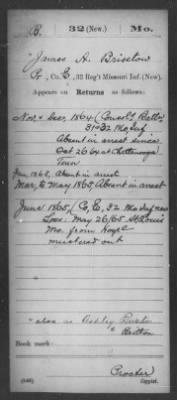 B. 32 (New.) Mo.
James A. Bristow
Co. E, 32 Reg't Missouri Inf. (New)
Appears on
Returns as follows:
Nov. & Dec, 1864 (Consol'd Batt'n
31st 32 Mo Inf
Absent in arrest since
Oct 26 64 at Chattanooga
Tenn
Jan 1865, Absent in arrest
Mar, to May 1865, Absent in arrest
June 1865, (Co, E, 32 Mo Inf new
Loss: May 26/65 St Louis
Mo. from Hospl
mustered out
also as Ashley
Britton
Book mark:
(546)
Copyist.